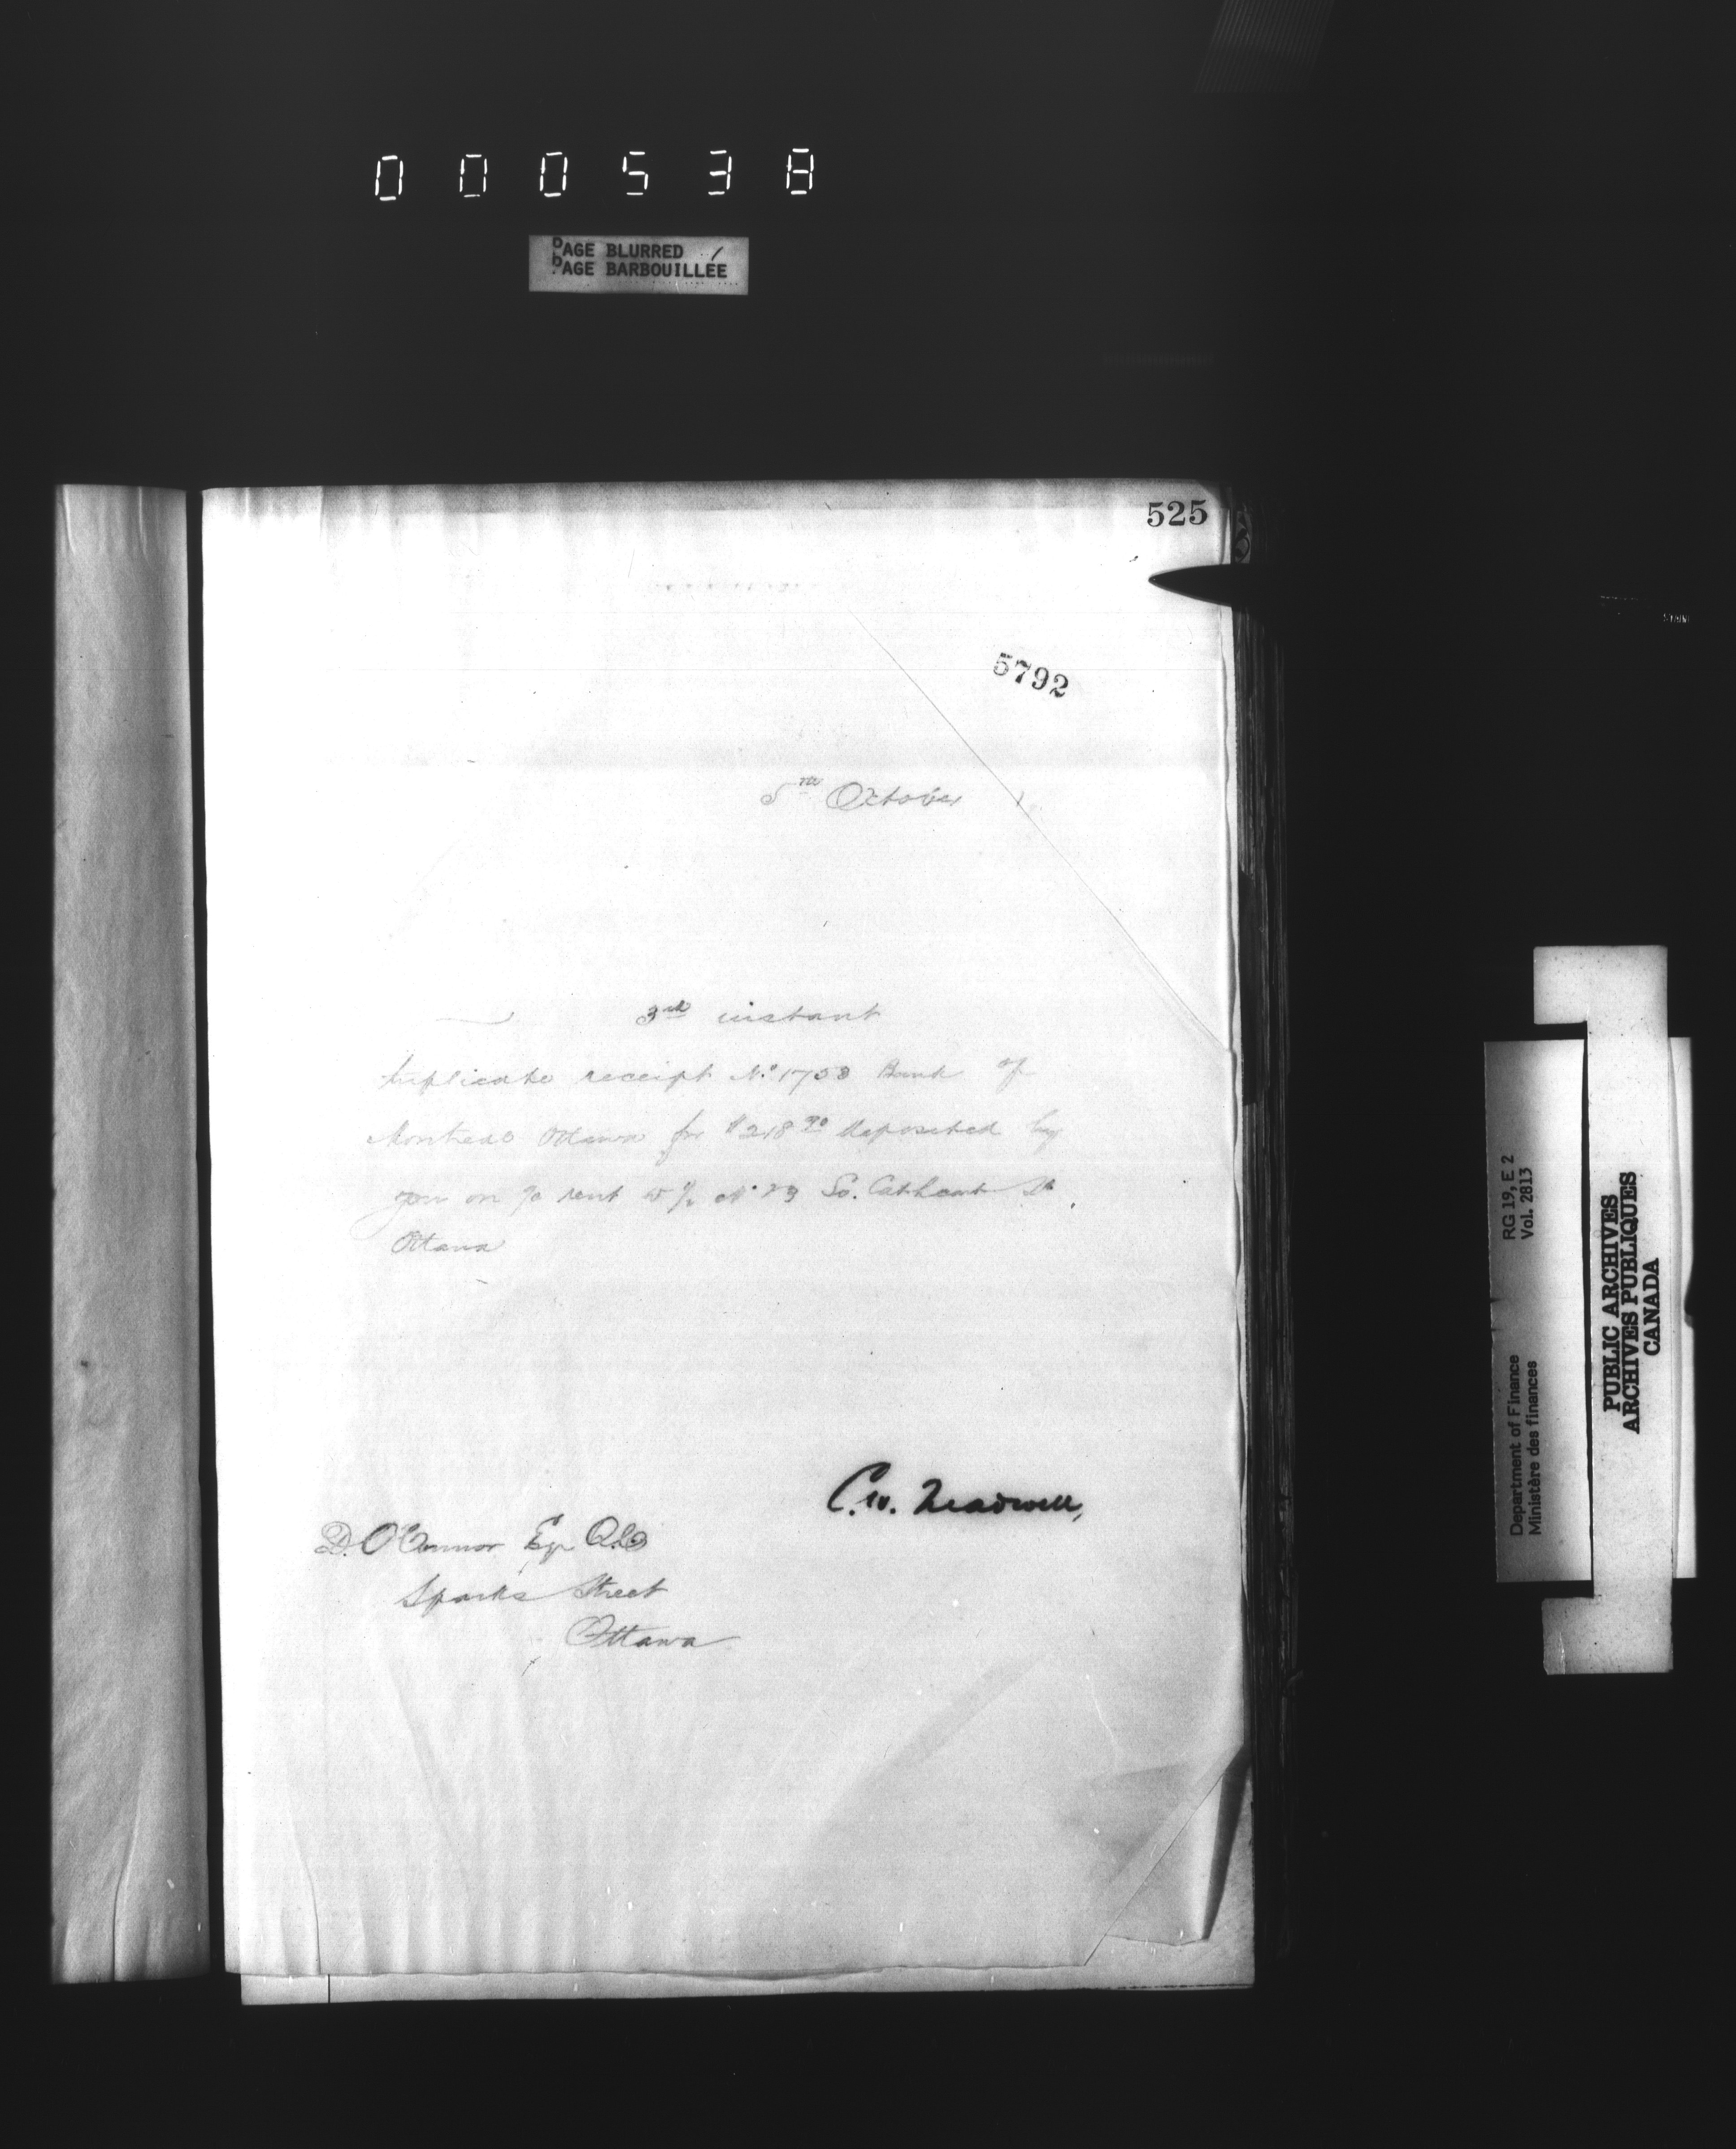 000538
PAGE BLURRED
PAGE BARBOUILLÉE
525
5792
5th October
3rd instant
duplicate receipt No. 1753 Bank of
Montreal Ottawa for $218 90 deposited by
you on a/c rent No. 29 So. Cathcart St.
Ottawa
C. W. Treadwell,
D. O'Connor Esqr Q.C.
Sparks Street
Ottawa
RG 19, E 2
Vol. 2813
Department of Finance
Ministère des finances
PUBLIC ARCHIVES
ARCHIVES PUBLIQUES
CANADA